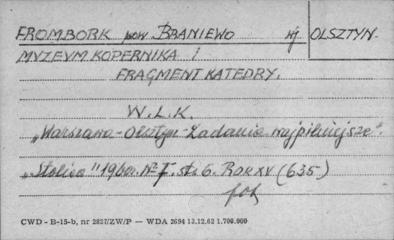 FROMBORK pow. BRANIEWO wj OLSZTYN.
MUZEUM KOPERNIKA i
FRAGMENT KATEDRY.
W.L.K.
„Warszawa-Olsztyn-Zadania najpilniejsze".
„Stolica" 1960r. Nr 7. st. 6. ROK XV (635)
fot
CWD - B-15-b, nr 2827/ZW/P — WDA 2694 12.12.62 1.700.000